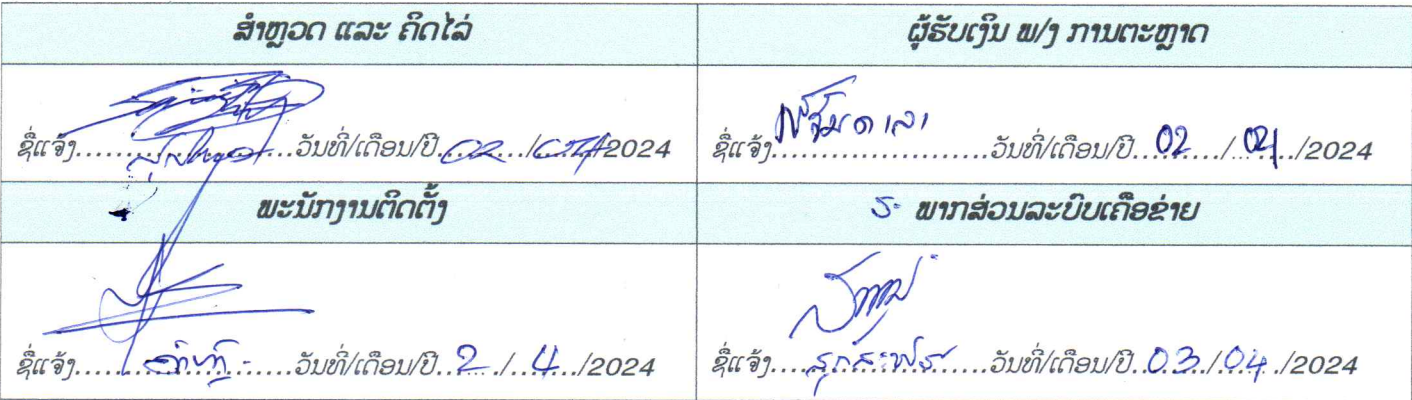 ສຳຫຼວດ ແລະ ຄິດໄລ່
ຜູ້ຮັບເງິນ ພ/ງ ການຕະຫຼາດ
ຊື່ແຈ້ງ......................ວັນທີ່/ເດືອນ/ປີ...02...../......./2024
ຊື່ແຈ້ງ......................ວັນທີ່/ເດືອນ/ປີ...02...../...04.../2024
ພະນັກງານຕິດຕັ້ງ
ພາກສ່ວນລະບົບເຄືອຂ່າຍ
ຊື່ແຈ້ງ......................ວັນທີ່/ເດືອນ/ປີ...2.../...4.../2024
ຊື່ແຈ້ງ......................ວັນທີ່/ເດືອນ/ປີ..03../..04../2024